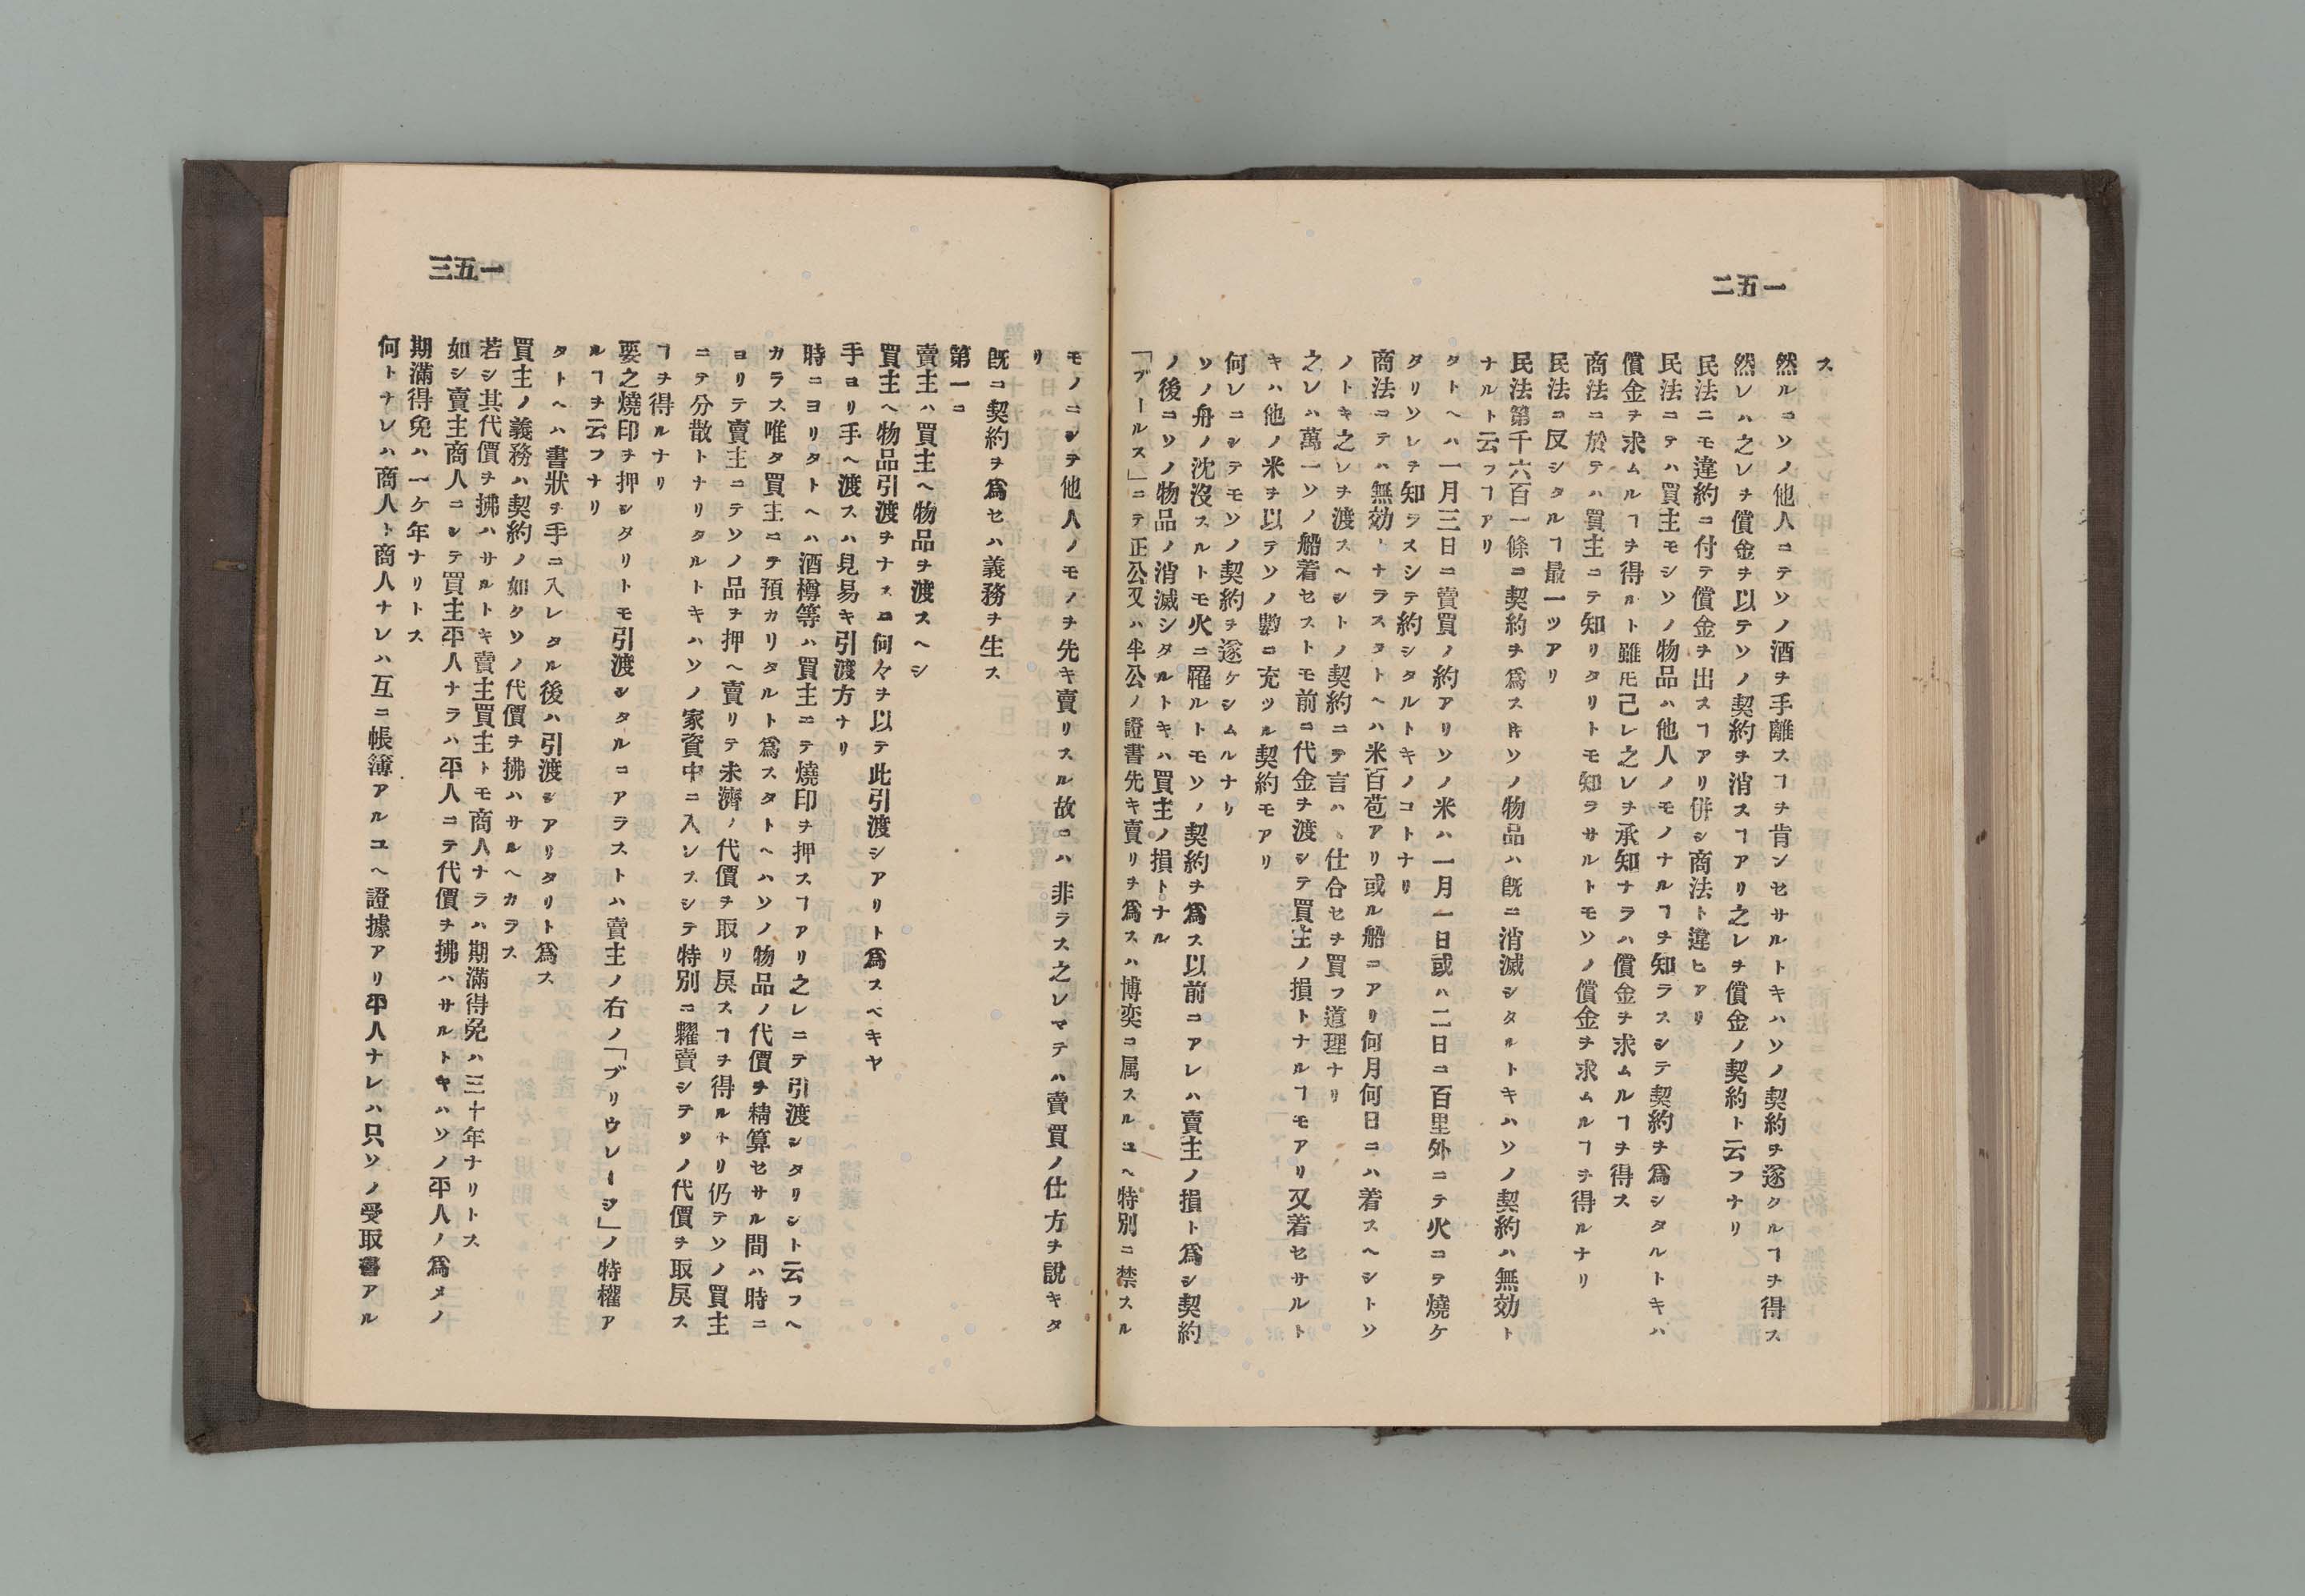 一五二
ス
然ルニソノ他人ニテソノ酒ヲ手離スヿヲ肯ンセサルトキハソノ契約ヲ遂クルヿヲ得ス
然レハ之レヲ償金ヲ以テソノ契約ヲ消スヿアリ之レヲ償金ノ契約ト云フナリ
民法ニモ違約ニ付テ償金ヲ出スヿアリ併シ商法ト違ヒアリ
民法ニテハ買主モシソノ物品ハ他人ノモノナルヿヲ知ラスシテ契約ヲ為シタルトキハ
償金ヲ求ムルヿヲ得ルト雖𪜈己レ之レヲ承知ナラハ償金ヲ求ムルヿヲ得ス
商法ニ於テハ買主ニテ知リタリトモ知ラサルトモソノ償金ヲ求ムルヿヲ得ルナリ
民法ニ反シタルヿ最一ツアリ
民法第千六百一條ニ契約ヲ爲スキソノ物品ハ既ニ消滅シタルトキハソノ契約ハ無効ト
ナルト云フヿアリ
タトヘハ一月三日ニ賣買ノ約アリソノ米ハ一月一日或ハ二日ニ百里外ニテ火ニテ燒ケ
タリソレヲ知ラスシテ約シタルトキノコトナリ
商法ニテハ無効トナラスタトヘハ米百苞アリ或ル船ニアリ何月何日ニハ着スヘシトソ
ノトキ之レヲ渡スヘシトノ契約ニテ言ハヽ仕合セヲ買フ道理ナリ
之レハ萬一ソノ船着セストモ前ニ代金ヲ渡シテ買主ノ損トナルヿモアリ又着セサルト
キハ他ノ米ヲ以テソノ數ニ充ツル契約モアリ
何レニシテモソノ契約ヲ遂ケシムルナリ
ソノ舟ノ沈沒スルトモ火ニ罹ルトモソノ契約ヲ爲ス以前ニアレハ賣主ノ損ト爲シ契約
ノ後ニソノ物品ノ消滅シタルトキハ買主ノ損トナル
「ブールス」ニテ正公又ハ半公ノ證書先キ賣リヲ爲スハ博奕ニ属スルユヘ特別ニ禁スル
一五三
モノニシテ他人ノモノヲ先キ賣リスル故ニハ非ラス之レマテハ賣買ノ仕方ヲ說キタ
リ
既ニ契約ヲ爲セハ義務ヲ生ス
第一ニ
賣主ハ買主ヘ物品ヲ渡スヘシ
買主ヘ物品引渡ヲナスニ何々ヲ以テ此引渡シアリト爲スベキヤ
手ヨリ手ヘ渡スハ見易キ引渡方ナリ
時ニヨリタトヘハ酒樽等ハ買主ニテ燒印ヲ押スヿアリ之レニテ引渡シタリシト云フヘ
カラス唯タ買主ニテ預カリタルト爲スタトヘハソノ物品ノ代價ヲ精算セサル間ハ時ニ
ヨリテ賣主ニテソノ品ヲ押ヘ賣リテ未濟ノ代價ヲ取リ戾スヿヲ得ルトリ仍テソノ買主
ニテ分散トナリタルトキハソノ家資中ニ入レスシテ特別ニ糶賣シテソノ代價ヲ取戾ス
ヿヲ得ルナリ
要之燒印ヲ押シタリトモ引渡シタルニアラストハ賣主ノ右ノ「プリウレージ」ノ特權ア
ルヿヲ云フナリ
タトヘハ書狀ヲ手ニ入レタル後ハ引渡シアリタリト爲ス
買主ノ義務ハ契約ノ如クソノ代價ヲ拂ハサルヘカラス
若シ其代價ヲ拂ハサルトキ賣主買主トモ商人ナラハ期滿得免ハ三十年ナリトス
如シ賣主商人ニシテ買主平人ナラハ平人ニテ代價ヲ拂ハサルトキハソノ平人ノ爲メノ
期滿得免ハ一ケ年ナリトス
何トナレハ商人ト商人ナレハ互ニ帳簿アルユヘ證據アリ平人ナレハ只ソノ受取書アル